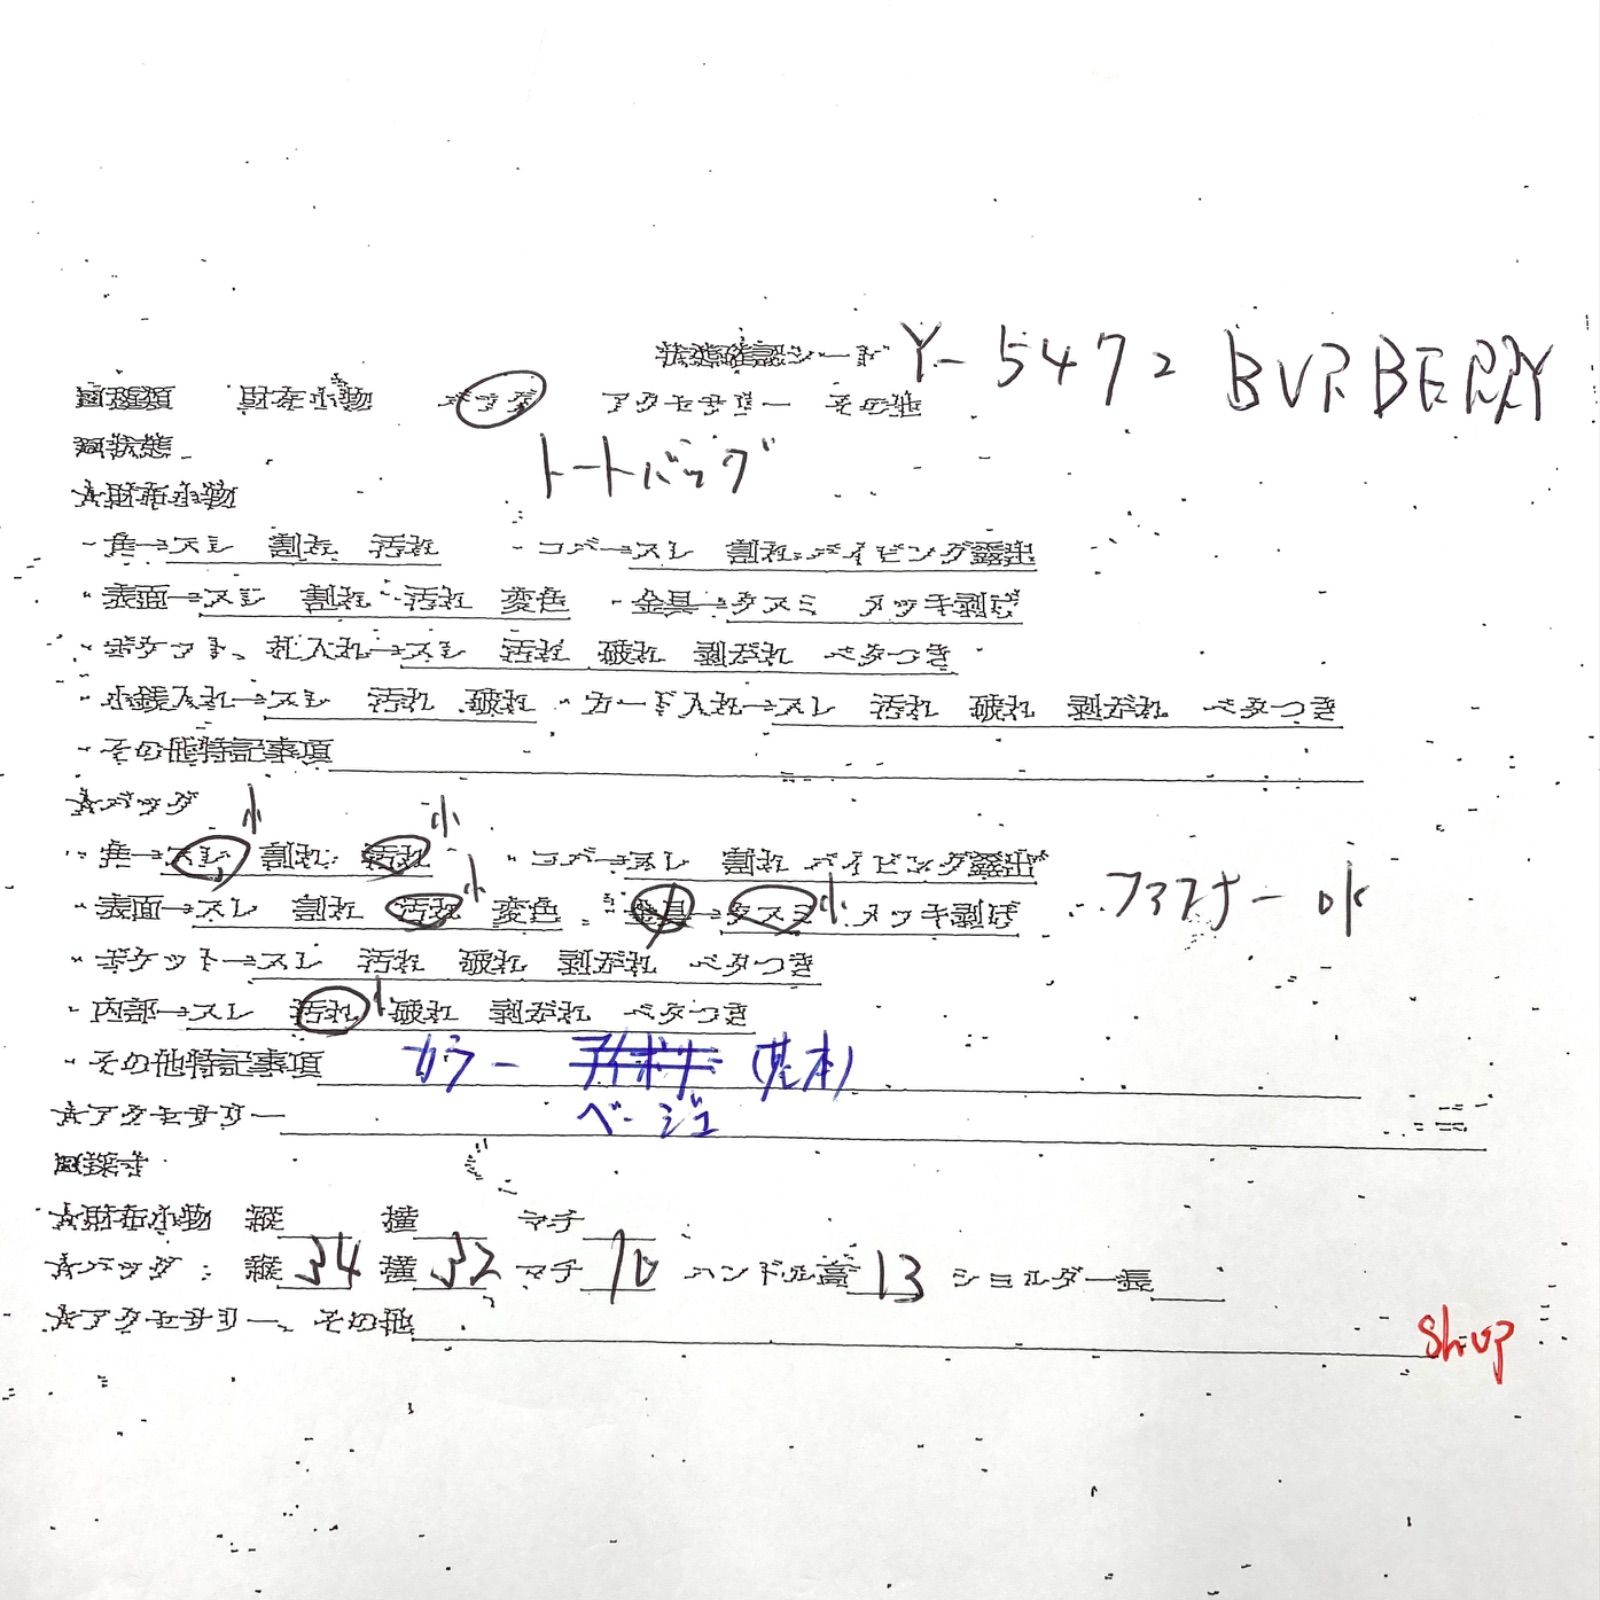 状態確認シード Y-5472 BURBERRY
□種類 財布小物 バッグ アクセサリー その他
□状態 トートバッグ
☆財布小物
・角→スレ 割れ 汚れ ・コバ→スレ 割れ パイピング露出
・表面→スレ 割れ 汚れ 変色 ・金具→クスミ メッキ剥げ
・ポケット、札入れ→スレ 汚れ 破れ 剥がれ ベタつき
・小銭入れ→スレ 汚れ 破れ ・カード入れ→スレ 汚れ 破れ 剥がれ ベタつき
・その他特記事項
☆バッグ 小 小
・角→スレ 割れ 汚れ ・コバ→スレ 割れ パイピング露出
・表面→スレ 割れ 汚れ 小 変色 ・金具→クスミ 小 メッキ剥げ ファスナー ok
・ポケット→スレ 汚れ 破れ 剥がれ ベタつき
・内部→スレ 汚れ 小 破れ 剥がれ ベタつき
・その他特記事項 カラー アイボリー (基本)
☆アクセサリー ベージュ
□採寸
☆財布小物 縦 横 マチ
☆バッグ : 縦 34 横 32 マチ 10 ハンドル高 13 ショルダー長
☆アクセサリー、その他 shop